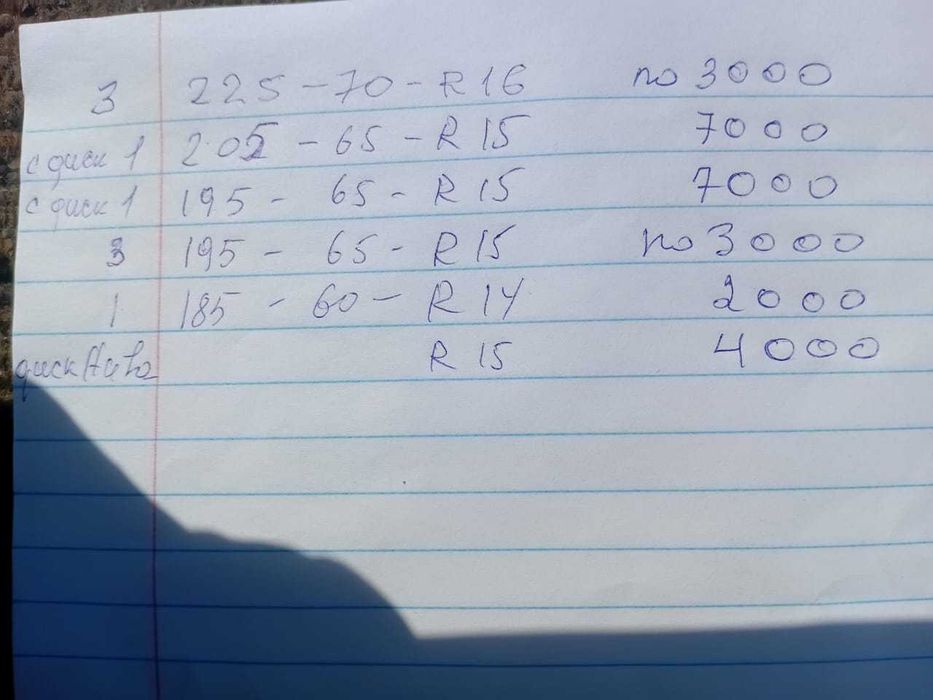 3 225-70-R16 по 3000
с диск 1 205-65-R15 7000
с диск 1 195-65-R15 7000
3 195-65-R15 по 3000
1 185-60-R14 2000
диск R15 4000